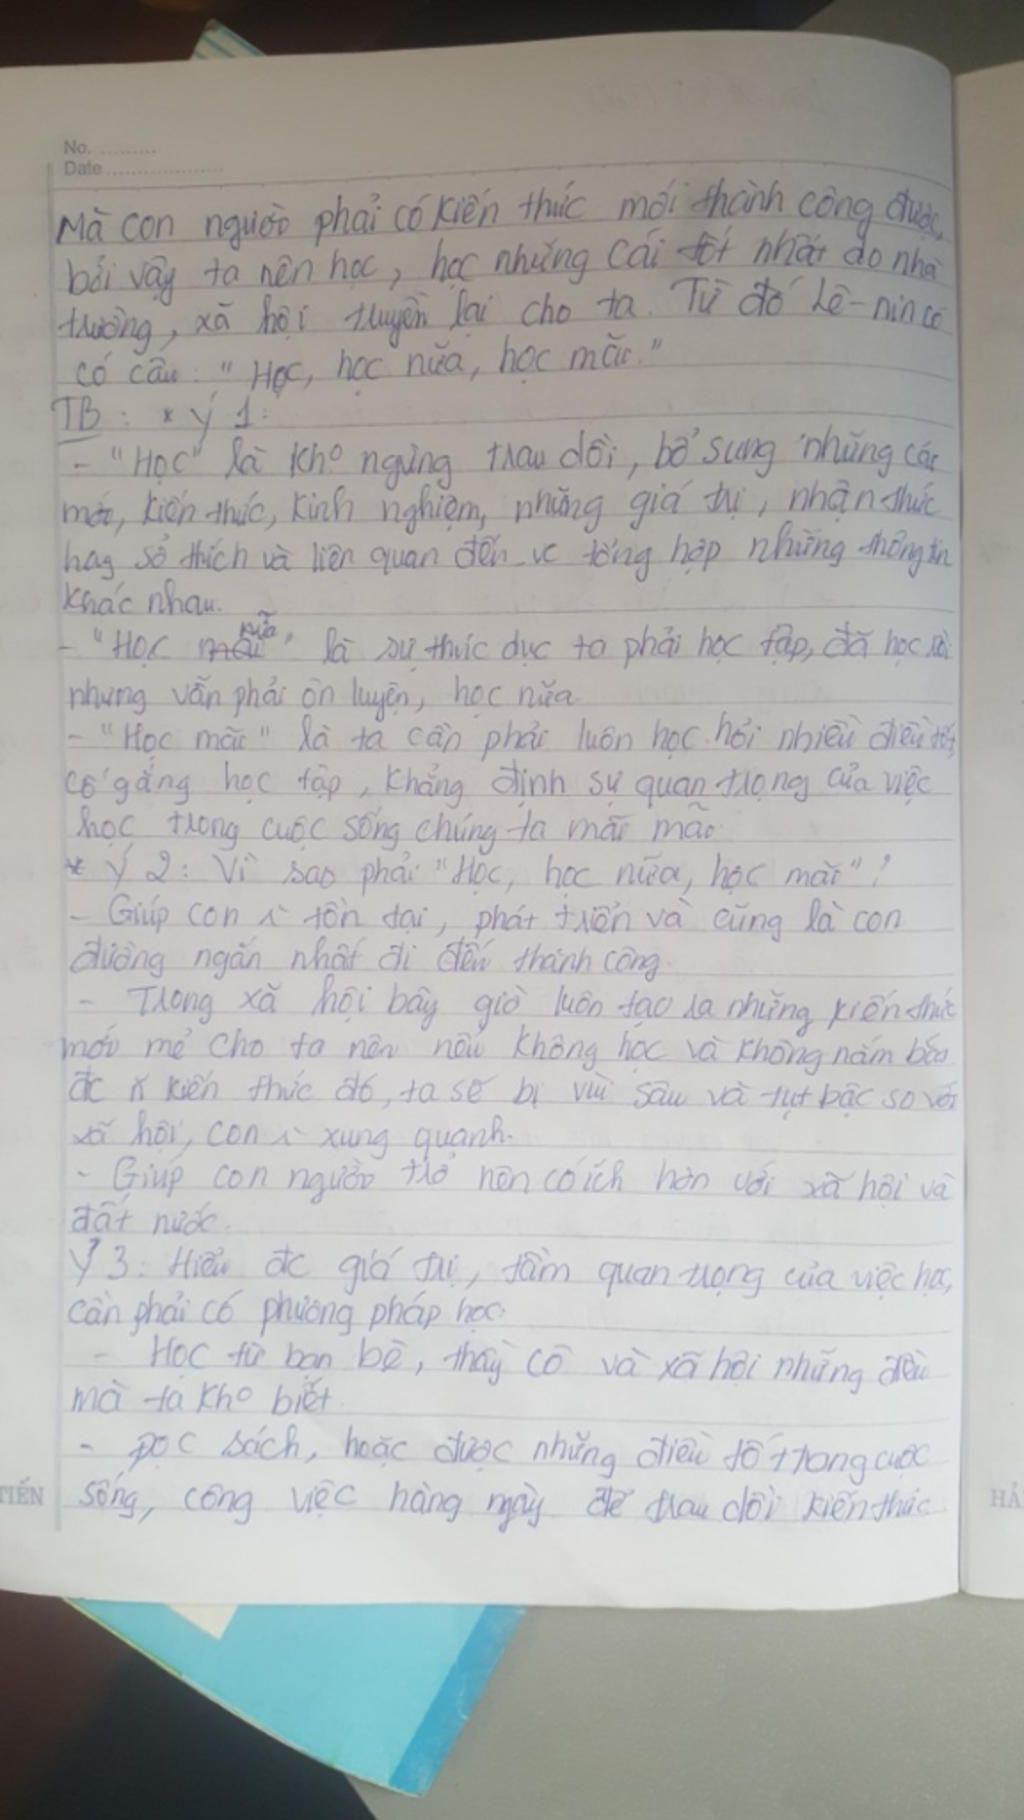 No. ..........
Date ....................
Mà con người phải có kiến thức mới thành công được,
bởi vậy ta nên học, học những cái tốt nhất do nhà
trường, xã hội truyền lại cho ta. Từ đó Lê-nin có
có câu: "Học, học nữa, học mãi."
TB: * Ý 1:
- "Học" là kho ngừng trau dồi, bổ sung những cái
mới, kiến thức, kinh nghiệm, những giá trị, nhận thức
hay sở thích và liên quan đến vc tổng hợp những thông tin
khác nhau.
- "Học nữa" là sự thúc dục ta phải học tập, đã học rồi
nhưng vẫn phải ôn luyện, học nữa.
- "Học mãi" là ta cần phải luôn học hỏi nhiều điều tốt,
cố gắng học tập, khẳng định sự quan trọng của việc
học trong cuộc sống chúng ta mãi mãi.
* Ý 2: Vì sao phải "Học, học nữa, học mãi"?
- Giúp con tồn tại, phát triển và cũng là con
đường ngắn nhất đi đến thành công.
- Trong xã hội bây giờ luôn tạo ra những kiến thức
mới mẻ cho ta nên nếu không học và không nắm bắt
đc kiến thức đó, ta sẽ bị vùi sâu và tụt bậc so với
xã hội, con xung quanh.
- Giúp con người trở nên có ích hơn với xã hội và
đất nước.
Ý 3: Hiểu đc giá trị, tầm quan trọng của việc học,
cần phải có phương pháp học:
- Học từ bạn bè, thầy cô và xã hội những điều
mà ta kho biết.
- Đọc sách, hoặc được những điều tốt trong cuộc
TIẾN sống, công việc hàng ngày để trau dồi kiến thức
HẢ